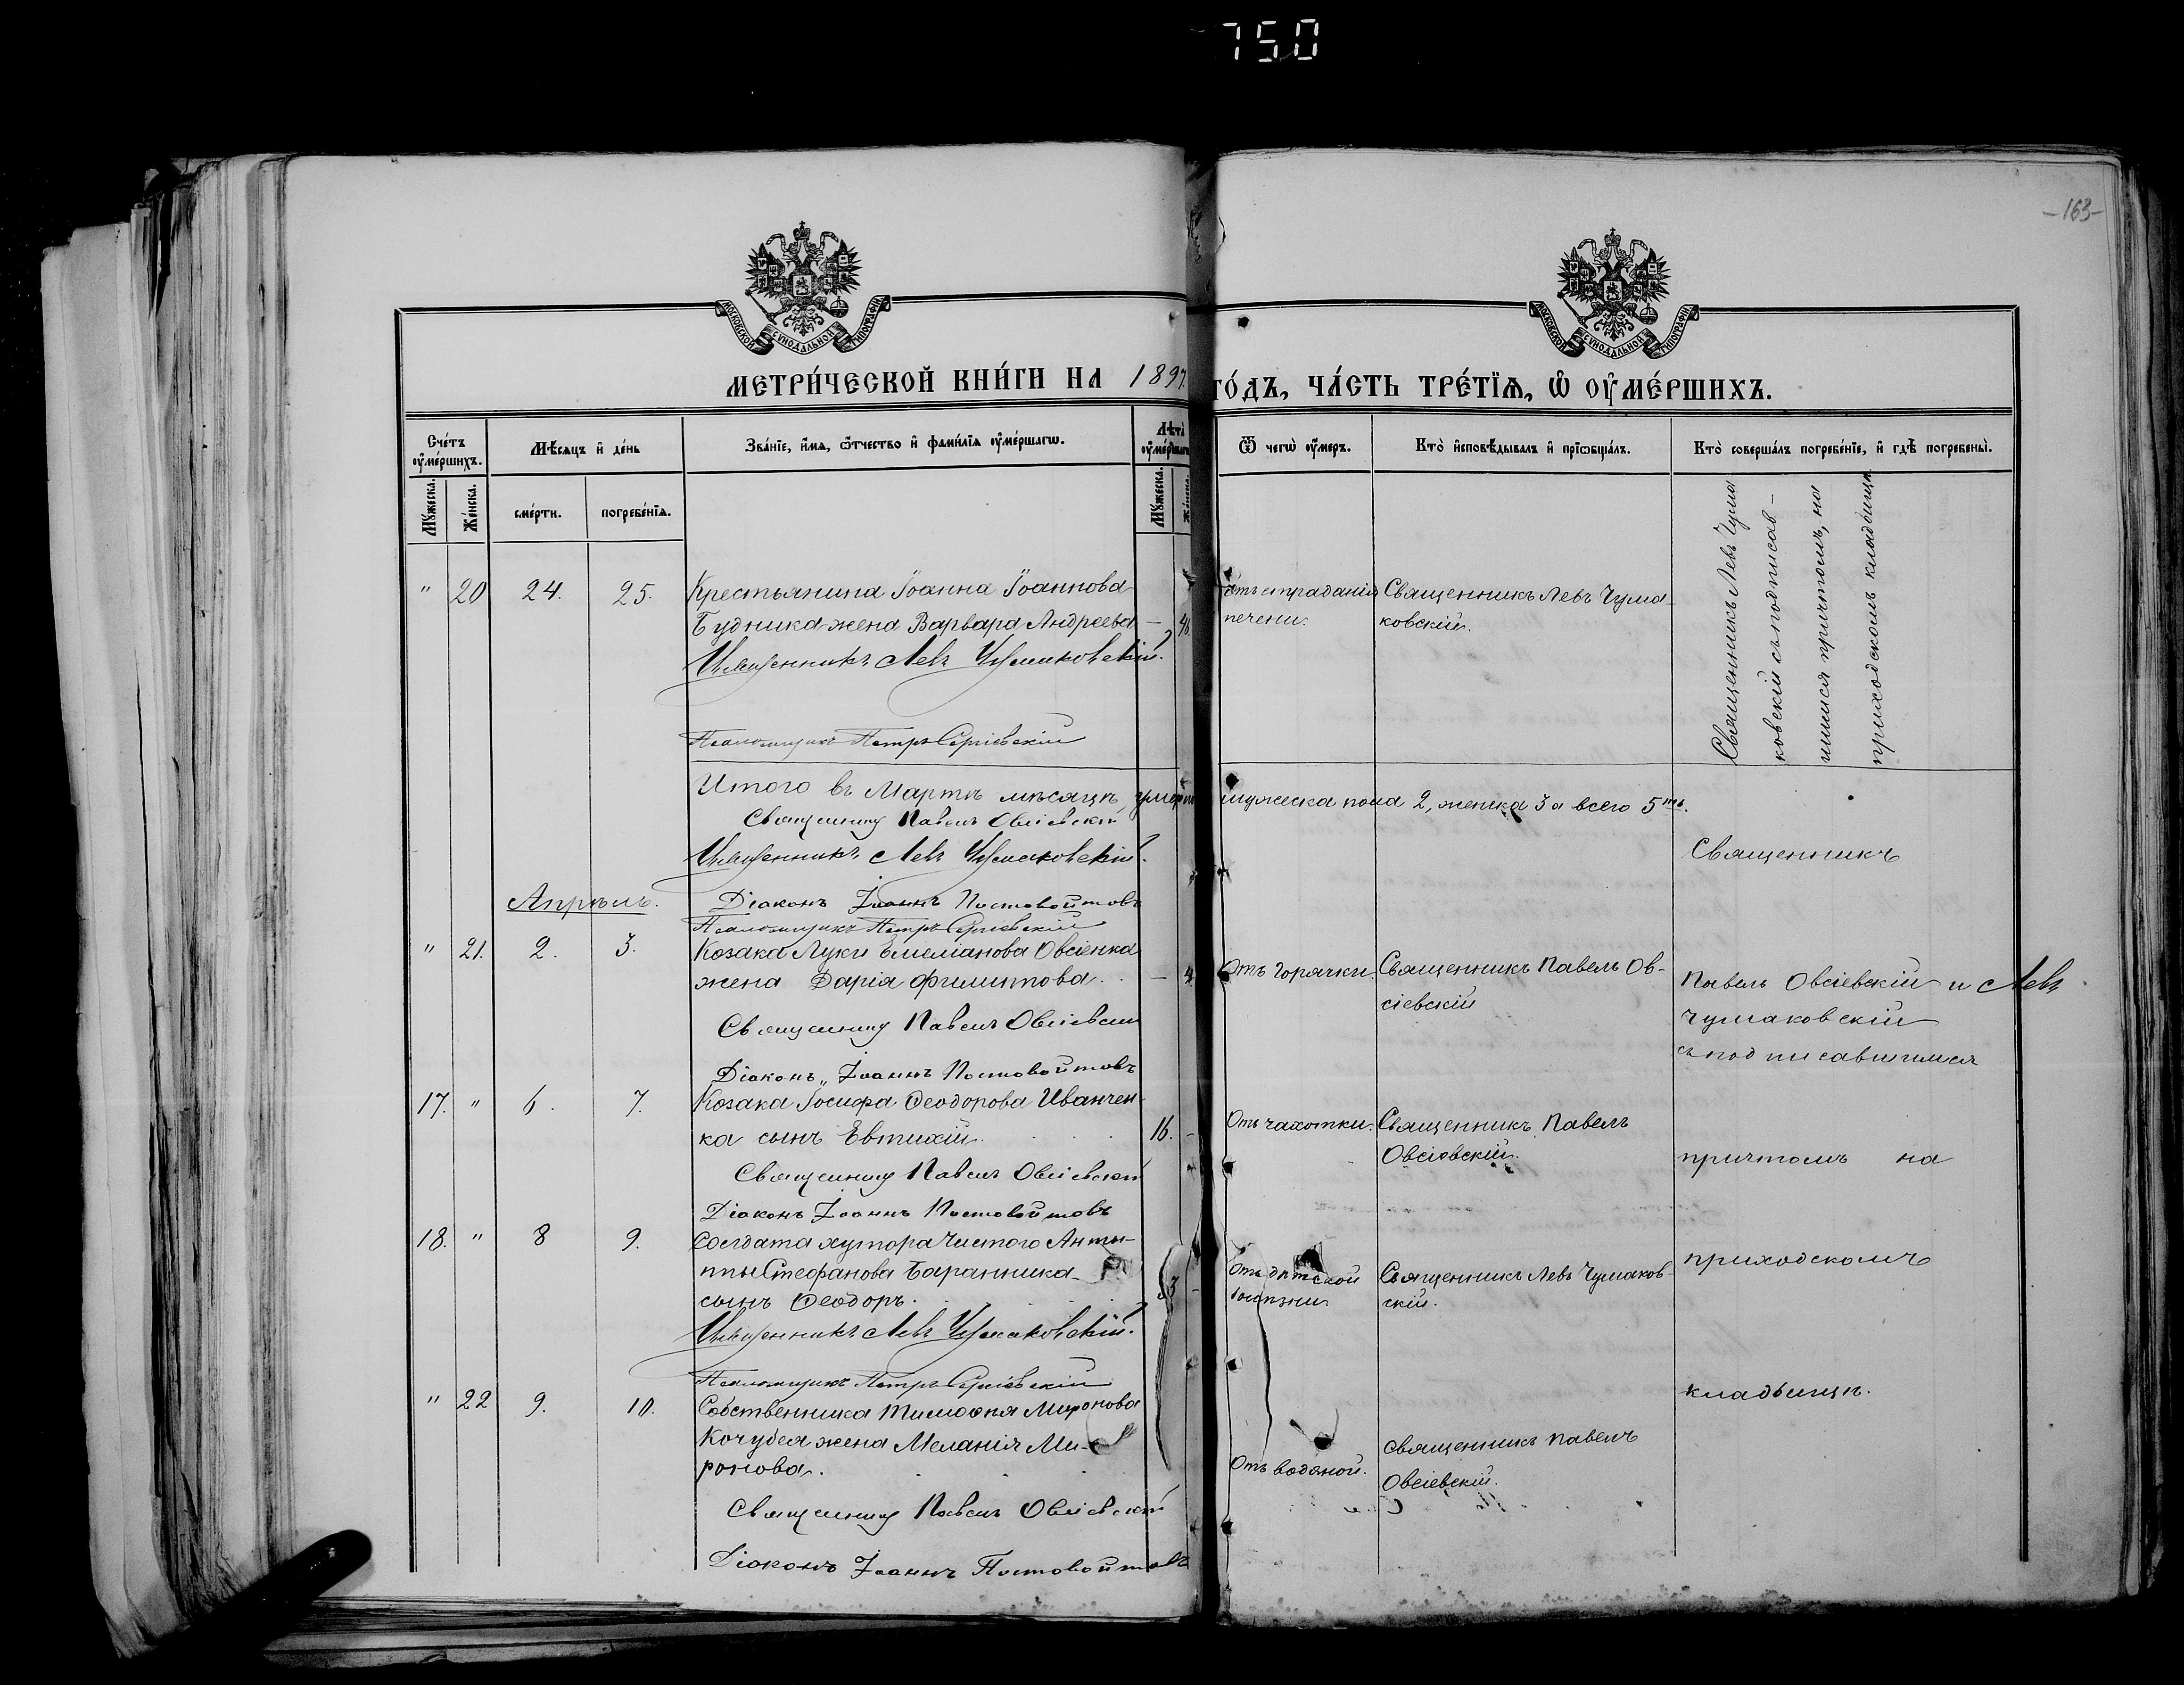 750
-163-
МОСКОВСКОЙ СУНОДАЛЬНОЙ ТИПОГРАФІИ
МОСКОВСКОЙ СУНОДАЛЬНОЙ ТИПОГРАФІИ
МЕТРИ́ЧЕСКОЙ КНИ́ГИ НА 1897.
ГО́ДЪ, ЧА́СТЬ ТРЕ́ТЇѦ, Ѡ҆ ОУ҆МЕ́РШИХЪ.
Сче́тъ оу҆ме́ршихъ.
Мꙋ́жеска.
Же́нска.
Мѣ́сѧцъ и҆ де́нь
сме́рти.
погребе́нїѧ.
Зва́нїе, и҆́мѧ, ѻ҆́тчество и҆ фами́лїѧ оу҆ме́ршагѡ.
Лѣ́та оу҆ме́ршагѡ
Мꙋ́жеска.
Же́нска.
Ѿ чегѡ̀ оу҆́меръ.
Кто̀ и҆сповѣ́дывалъ и҆ прїѡбща́лъ.
Кто̀ соверша́лъ погребе́нїе, и҆ гдѣ̀ погребены̀.
" 20 24. 25. Крестьянина Іоанна Іоаннова
Будника жена Варвара Андреева —
Священникъ Левъ Чумаковскій.
Псаломщикъ Петръ Сергіевскій
Отъ страданія
печени.
Священникъ Левъ Чума-
ковскій.
Священникъ Левъ Чума
ковскій съ подписав-
шимся причтомъ, на
приходскомъ кладбищѣ
Итого въ Мартѣ мѣсяцѣ умерло мужеска пола 2, женска 3 а всего 5ть.
Священникъ Павелъ Овсіевскій
Священникъ Левъ Чумаковскій.
Апрѣль. Діаконъ Іоаннъ Постовойтовъ
Псаломщикъ Петръ Сергіевскій
" 21. 2. 3. Козака Луки Емеліанова Овсіенка
жена Дарія Филиппова. —
Священникъ Павелъ Овсіевскій
Діаконъ Іоаннъ Постовойтовъ
Отъ горячки.
Священникъ Павелъ Ов-
сіевскій
17. " 6. 7. Козака Іосифа Ѳеодорова Иванчен-
ка сынъ Евтихій. 16. -
Священникъ Павелъ Овсіевскій
Діаконъ Іоаннъ Постовойтовъ
Отъ чахотки.
Священникъ Павелъ
Овсіевскій.
18. " 8 9. Солдата хутора Чистого Анти-
ппы Стефанова Баранника
сынъ Ѳеодоръ. 3 -
Священникъ Левъ Чумаковскій.
Псаломщикъ Петръ Сергіевскій
Отъ дѣтской
болѣзни
Священникъ Левъ Чумаков-
скій.
" 22 9. 10. Собственника Тимоѳея Миронова
Кочубея жена Меланія Ми-
ронова.
Священникъ Павелъ Овсіевскій
Діаконъ Іоаннъ Постовойтовъ
Отъ водяной.
Священникъ Павелъ
Овсіевскій.
Священникъ
Павелъ Овсіевскій и Левъ
Чумаковскій
съ подписавшимся
причтомъ на
приходскомъ
кладбищѣ.